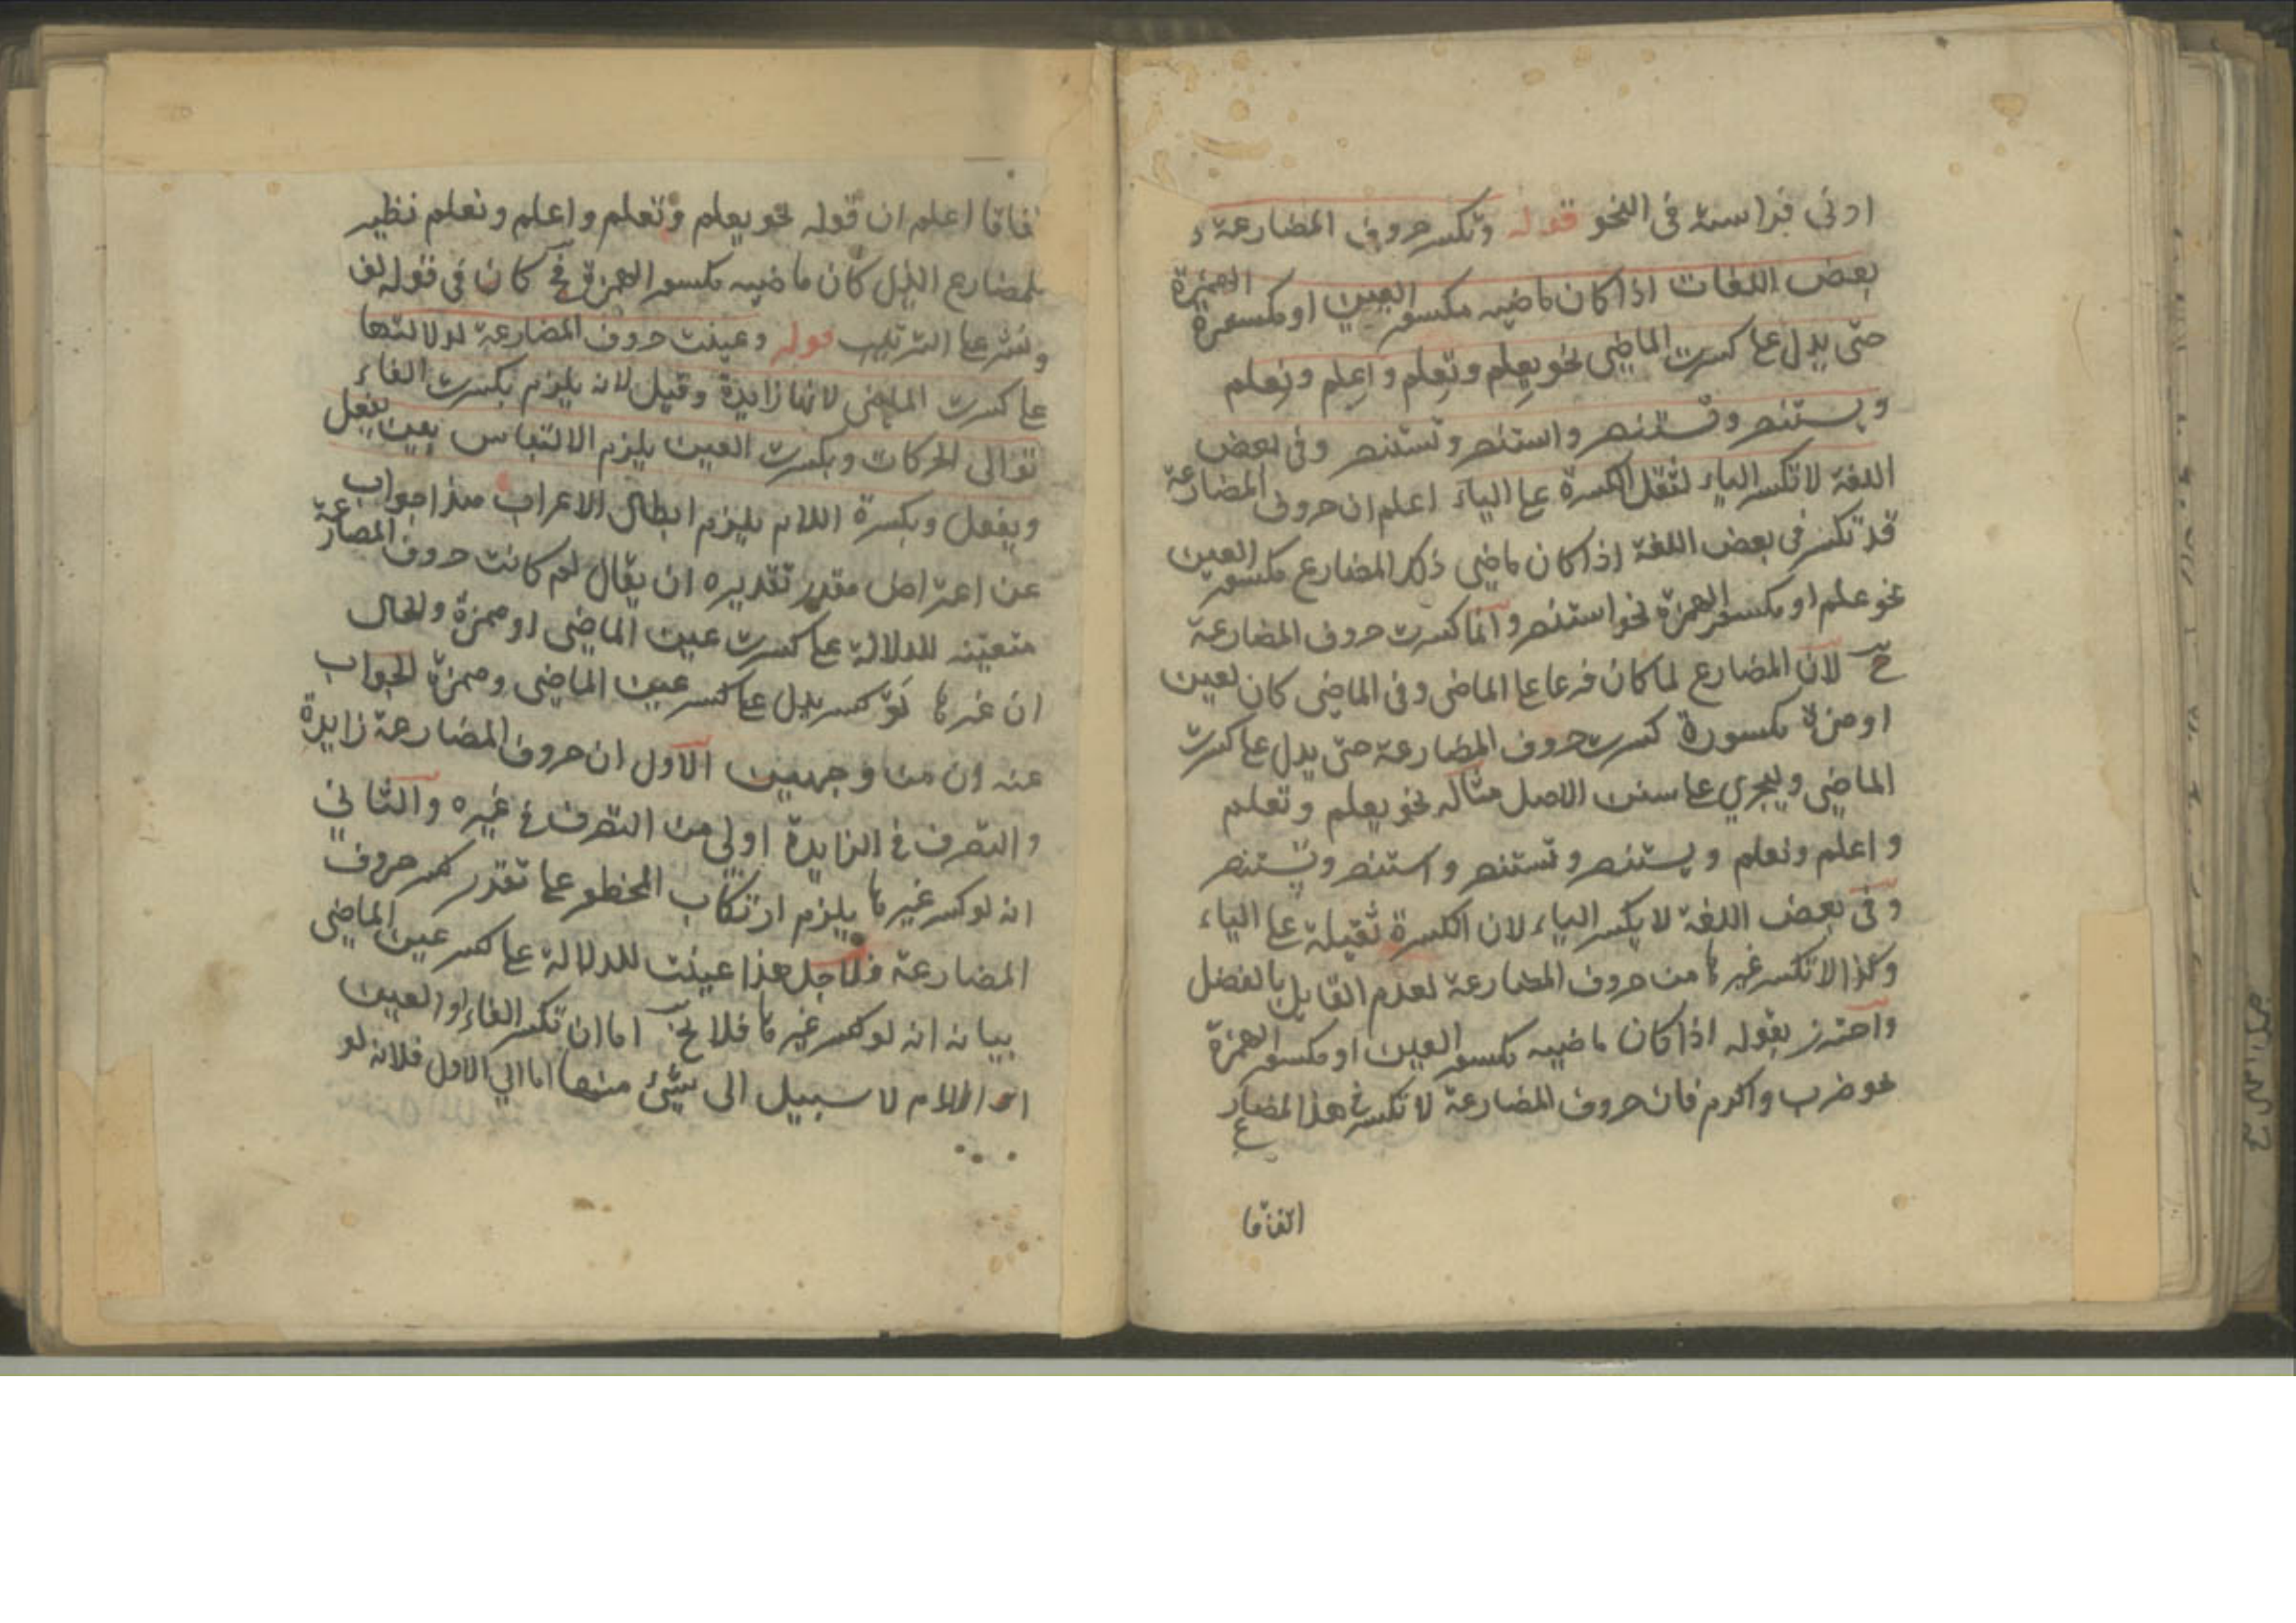 ادنى فراسة فى النحو قوله وتكسر حروف المضارعة و
بعض اللغات اذا كان ماضيه مكسور العين او مكسورة الهمزة
حتى يدل على كسرت الماضي نحو يعلم وتعلم واعلم ونعلم
ويستنصر وتستنصر واستنصر ونستنصر وفى بعض
اللغة لا تكسر الياء لثقل الكسرة على الياء اعلم ان حروف المضارعة
قد تكسر فى بعض اللغة اذا كان ماضي ذكر المضارع مكسور العين
نحو علم او مكسور الهمزة نحو استنصر وانما كسرت حروف المضارعة
ح لان المضارع لما كان فرعا على الماضى وفى الماضى كان لعين
او همزة مكسورة كسرت حروف المضارعة حتى يدل على كسرت
الماضي وليجري على سنن الاصل مثاله نحو يعلم وتعلم
واعلم ونعلم ويستنصر وتستنصر واستنصر ونستنصر
وفى بعض اللغة لا يكسر الياء لان الكسرة ثقيلة على الياء
وكذا لا تكسر غيرها من حروف المضارعة لعدم القايل بالفضل
واحترز بقوله اذا كان ماضيه مكسور العين او مكسور الهمزة
نحو ضرب واكرم فان حروف المضارعة لا تكسر فى هذا المضارع
اتفاقا
تفاقا اعلم ان قوله نحو يعلم وتعلم واعلم ونعلم نظير
للمضارع الذى كان ماضيه مكسور الهمزة فح كان فى قوله لف
ونشر على الترتيب قوله وعينت حروف المضارعة لدلالتها
على كسرت الماضى لانها زايدة وقيل لانه يلزم بكسرت الفاء
توالى الحركات وبكسرت العين يلزم الالتباس بين يفعل
ويفعل وبكسرة اللام يلزم ابطال الاعراب هذا جواب
عن اعتراض مقدر تقديره ان يقال لم كانت حروف المضارعة
متعينه للدلالة على كسرت عين الماضي او همزة والحال
ان غيرها لو كسر يدل على كسر عين الماضي وهمزة الجواب
عنه ون من وجهين الاول ان حروف المضارعة زايدة
والتصرف فى الزايدة اولي من التصرف فى غيره والثاني
انه لو كسر غيرها يلزم ارتكاب المحظور على تقدر كسر حروف
المضارعة فلاجل هذا عينت للدلالة على كسر عين الماضي
بيانه انه لو كسر غيرها فلا يخ اما ان تكسر الفاء او العين
او اللام لا سبيل الى شئ منها اما الي الاول فلانه لو